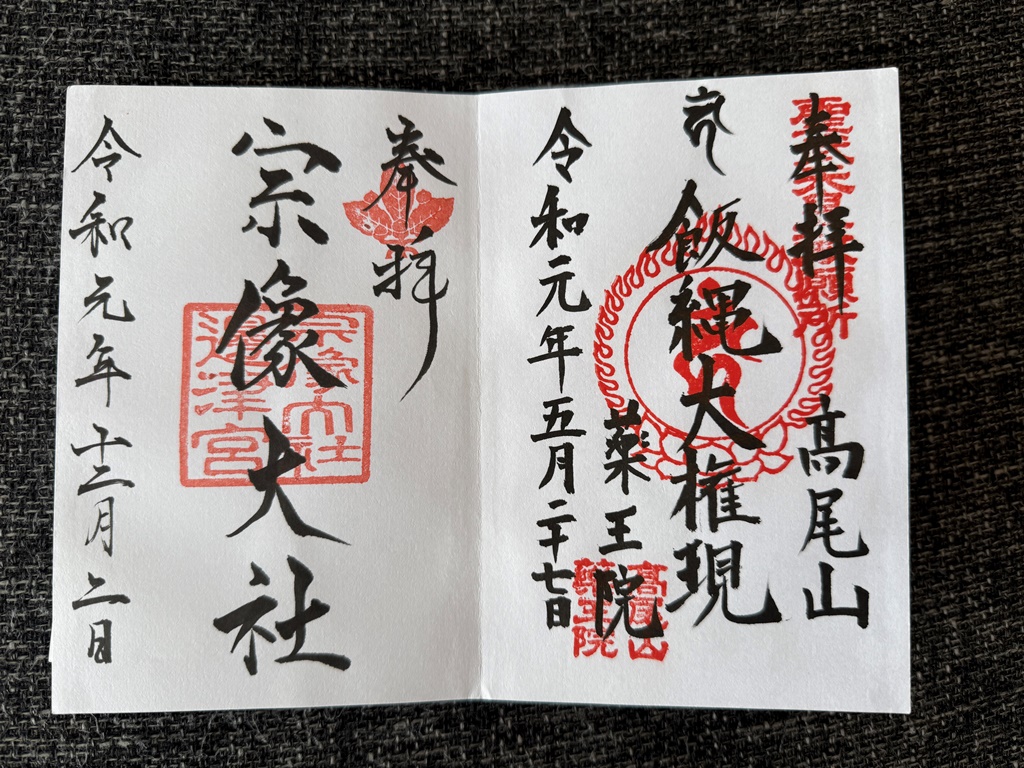 奉拝
高尾山
飯縄大権現
薬王院
令和元年五月二十七日
高尾山
薬王院
奉拝
宗像大社
宗像大社
邊津宮
令和元年十二月二日